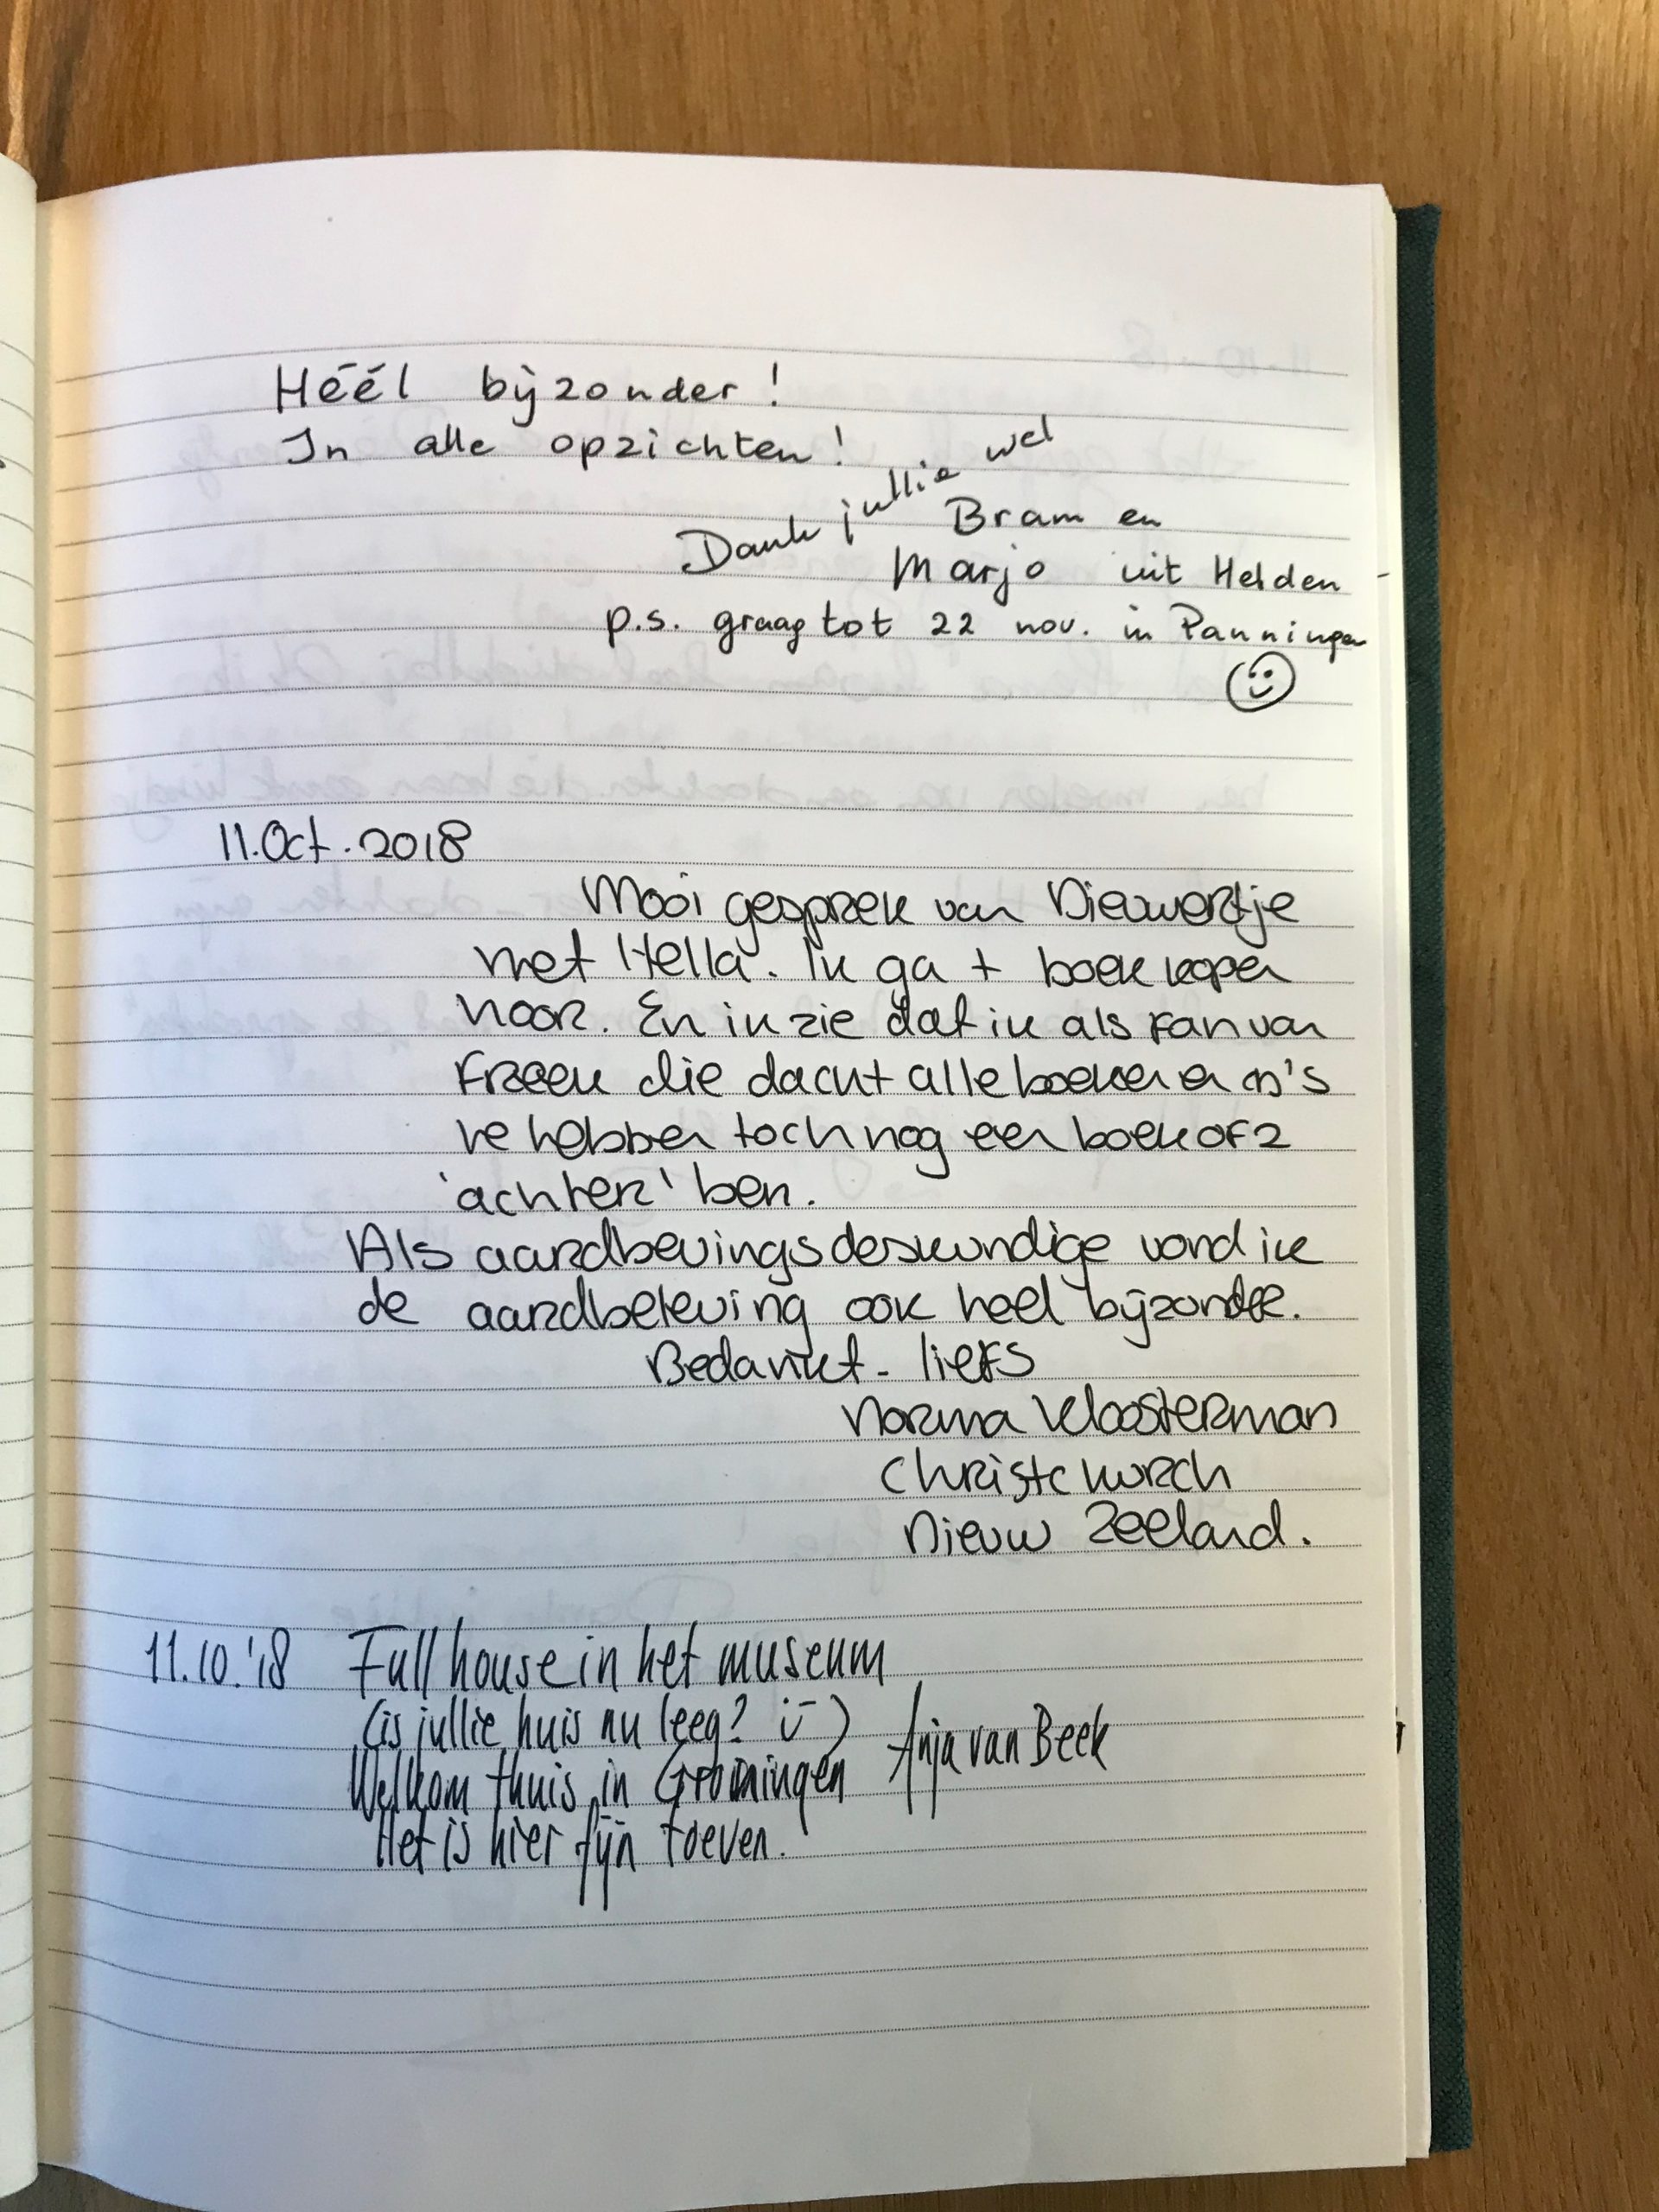 Héél bijzonder!
In alle opzichten!
Dank jullie wel
Bram en
Marjo uit Helden
p.s. graag tot 22 nov. in Panningen
11.Oct.2018
Mooi gesprek van Nieuwertje
met Hella. Ik ga t boek kopen
hoor. En ik zie dat ik als fan van
Freek die dacht alle boeken en
te hebben toch nog een boek of 2
'achter' ben.
Als aardbevingsdeskundige vond ik
de aardbeleving ook heel bijzonder.
Bedankt - liefs
Norma Kloosterman
Christchurch
Nieuw Zeeland.
11.10.'18 Full house in het museum
(is jullie huis nu leeg? ü)
Anja van Beek
Welkom thuis in Groningen
Het is hier fijn toeven.